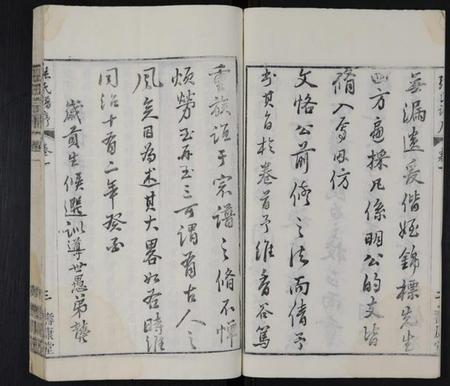 無漏遺爰偕姪錦標先生
四方遍採凡係明公的支皆
脩入焉因仿
文恪公前脩之法而倩予
書其首於卷首予維香谷篤
重族誼于宗譜之脩不憚
煩勞至再至三可謂有古人之
風矣因為述其大畧如右時維
同治十有二年癸酉
歲貢生候選訓導世愚弟
張氏譜序
卷一
三